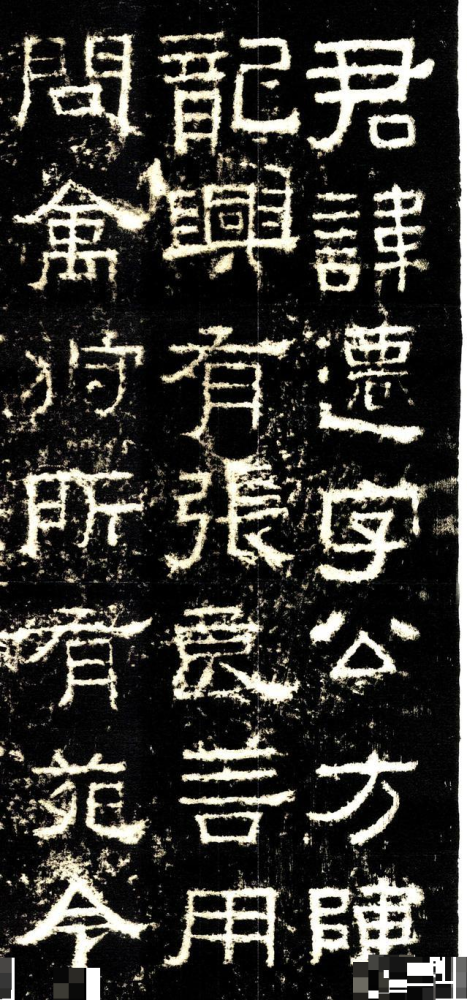 君諱遷字公方陳
龍興有張良善用
問禽狩所有苑令